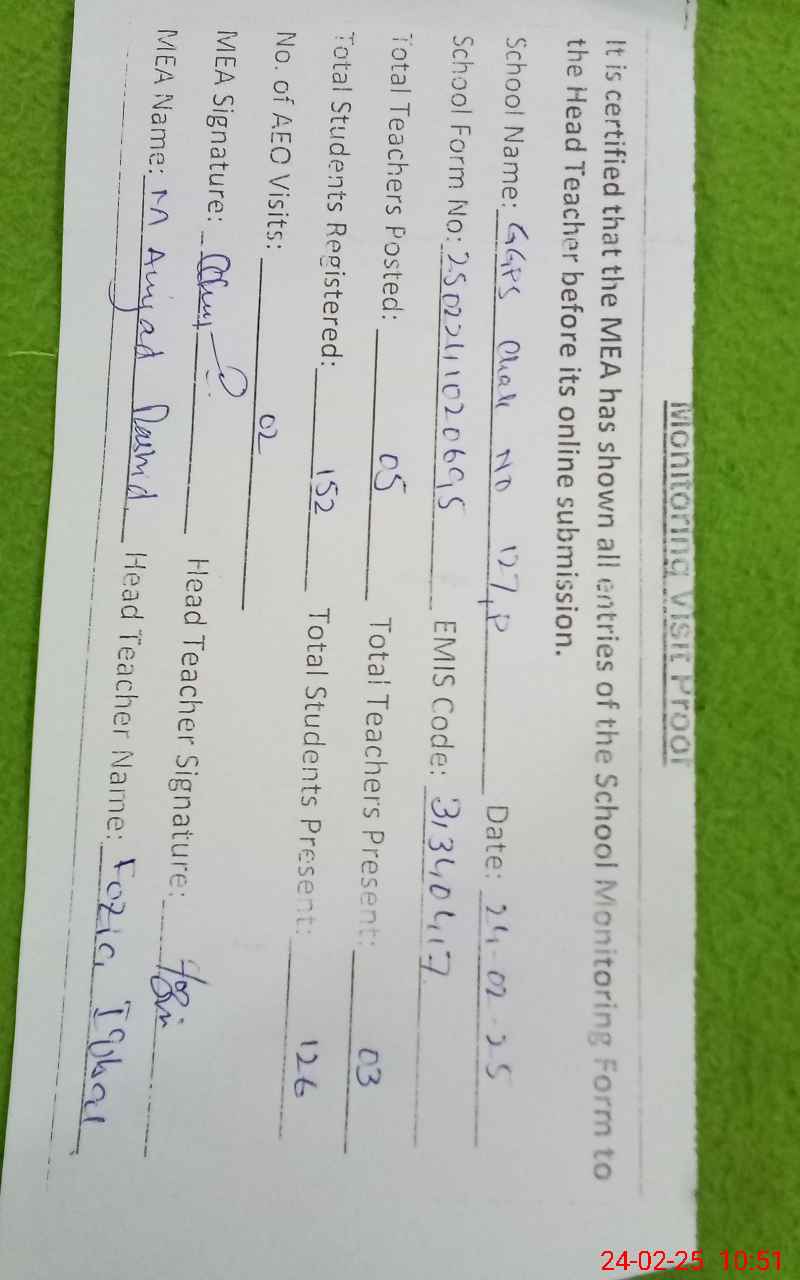 Monitoring Visit Proof
It is certified that the MEA has shown all entries of the School Monitoring Form to
the Head Teacher before its online submission.
School Name: GGPS Chak No 127,P Date: 24-02-25
School Form No: 2502241020695 EMIS Code: 31340417
Total Teachers Posted: 05 Total Teachers Present: 03
Total Students Registered: 152 Total Students Present: 126
No. of AEO Visits: 02
MEA Signature: Head Teacher Signature:
MEA Name: M Amjad Rashid Head Teacher Name: Fozia Iqbal
24-02-25 10:51